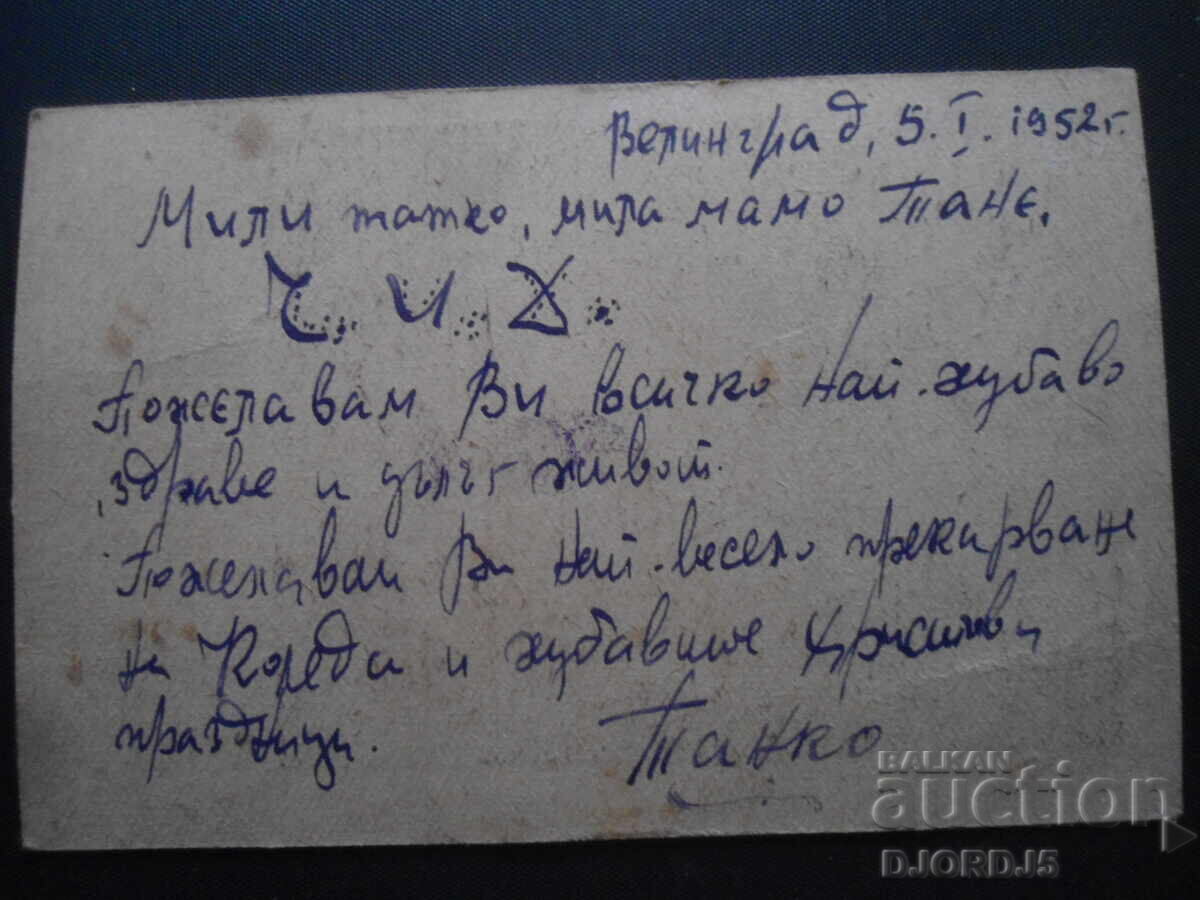 Велинград, 5. I. 1952 г.
Мили татко, мила мамо Танe,
Ч. И. Х.
Пожелавам Ви всичко най-хубаво
здраве и дълъг живот.
Пожелавам Ви най-весело прекарване
на Коледа и хубавите
празници.
Танко
BALKAN
auction
DJORDJ5